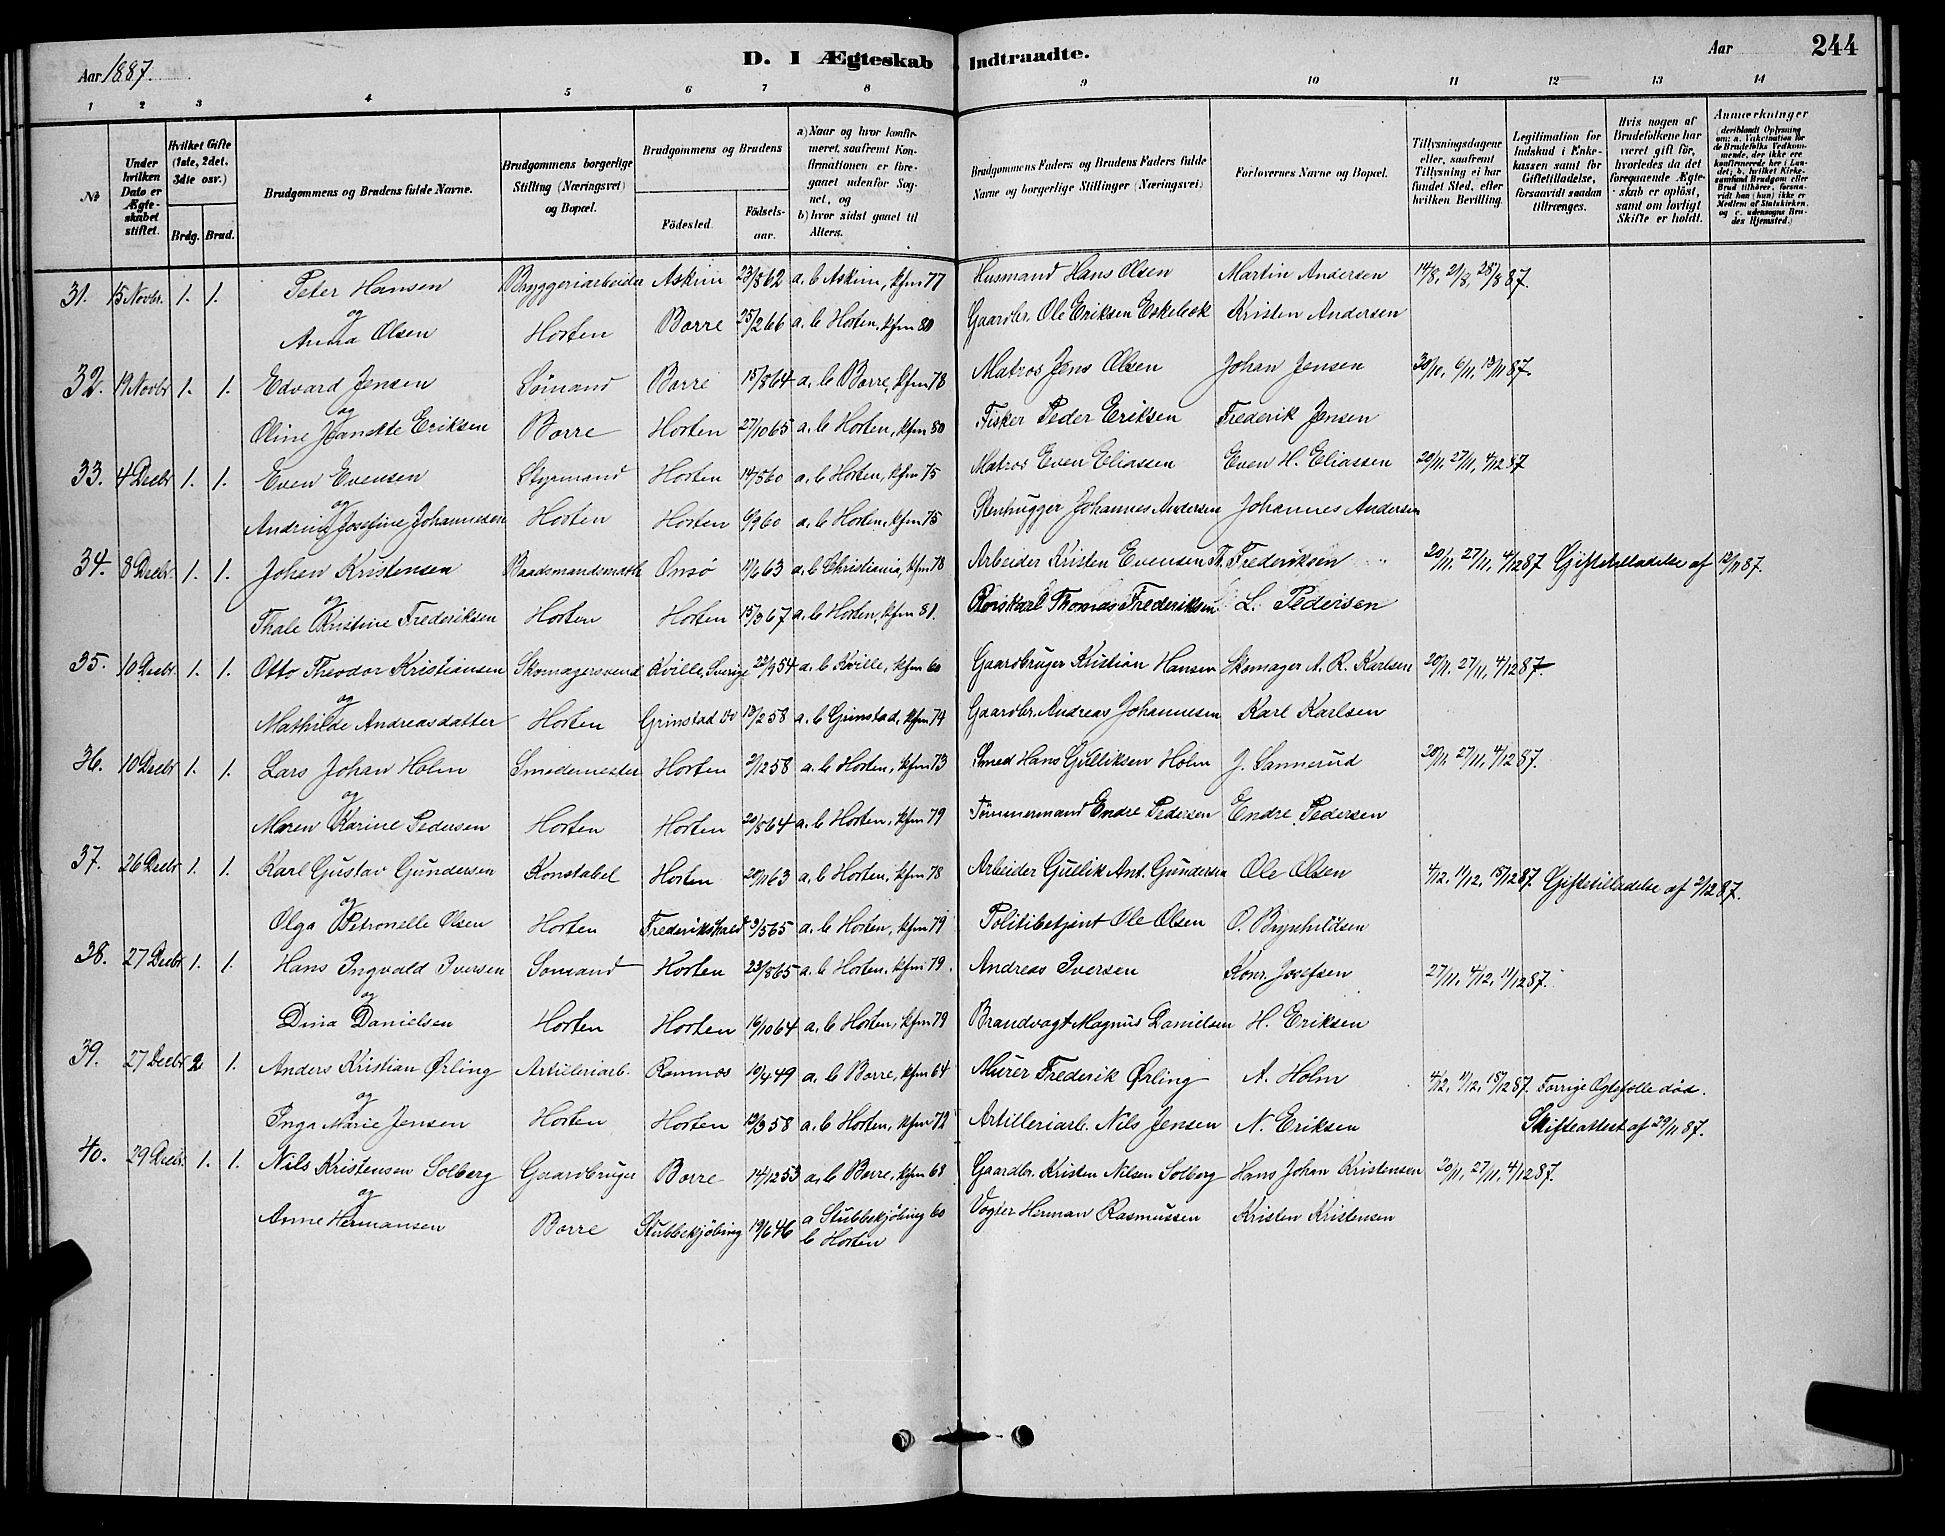 Aar 1887.
D. I Ægteskab Indtraadte.
Aar
244
1 2 3 4 5 6 7 8 9 10 11 12 13 14
№
Under hvilken Dato er Ægteskabet stiftet.
Hvilket Gifte (1ste, 2det, 3die osv.)
Brdg. Brud.
Brudgommens og Brudens fulde Navne.
Brudgommens borgerlige Stilling (Næringsvei) og Bopæl.
Brudgommens og Brudens
Födested.
Födsels-aar.
a) Naar og hvor konfirmeret, saafremt Konfirmationen er foregaaet udenfor Sognet, og
b) hvor sidst gaaet til Alters.
Brudgommens Faders og Brudens Faders fulde Navne og borgerlige Stillinger (Næringsvei)
Forlovernes Navne og Bopæl.
Tillysningsdagene eller, saafremt Tillysning ei har fundet Sted, efter hvilken Bevilling.
Legitimation for Indskud i Enkekassen samt for Giftetilladelse, forsaavidt saadan tiltrænges.
Hvis nogen af Brudefolkene har været gift för, hvorledes da det foregaaende Ægteskab er oplöst, samt om lovligt Skifte er holdt.
Anmærkninger (deriblandt Oplysning om: a. Vakcination for de Brudefolks Vedkommende, der ikke ere konfirmerede her i Landet; b. hvilket Kirkesamfund Brudgom eller Brud tilhører, forsaavidt han (hun) ikke er Medlem af Statskirken, og c. udensogns Brudes Hjemsted.)
31. 15 Novbr. 1. 1. Peter Hansen Bryggeriarbeider Askim 23/8 62 a. b Askim, kfm 77 Husmand Hans Olsen Martin Andersen 14/8, 21/8, 28/8 87.
og
Anna Olsen Horten Borre 25/2 66 a. b Horten, kfm 80 Gaardbr. Ole Eriksen Eskebæk Kristen Andersen
32. 19 Novbr 1. 1. Edvard Jensen Sömand Borre 15/8 64 a. b Borre, kfm 78 Matros Jens Olsen Johan Jensen 30/10, 6/11, 13/11 87.
og
Oline Jeanette Eriksen Borre Horten 27/10 65 a. b Horten, kfm 80 Fisker Peder Eriksen Frederik Jensen
33. 4 Decbr 1. 1. Even Evensen Styrmand Horten 14/5 60 a. b Horten, kfm 75 Matros Even Eliassen Even H. Eliassen 20/11, 27/11, 4/12 87
og
Andrine Josefine Johannesen Horten Horten 6/9 60 a. b Horten, kfm 75 Stenhugger Johannes Andersen Johannes Andersen
34. 8 Decbr. 1. 1. Johan Kristensen Baadsmandsmath Onsö 11/6 63 a. b Christiania, kfm 78 Arbeider Kristen Evensen Th. Frederiksen 20/11, 27/11, 4/12 87 Giftetilladelse af 12/11 87.
og
Thale Kristine Frederiksen Horten Horten 15/3 67 a. b Horten, kfm 81. Rorskarl Thomas Frederiksen L. Pedersen
35. 10 Decbr. 1. 1. Otto Theodor Kristiansen Skomagersvend Kville, Sverige 22/9 54 a. b Kville, kfm 60 Gaardbruger Kristian Hansen Skomager A. R. Karlsen 20/11, 27/11, 4/12 87
og
Mathilde Andreasdatter Horten Grinstad Do 13/2 58 a. b Grinstad, kfm 74 Gaardbr. Andreas Johannesen Karl Karlsen
36. 10 Decbr 1. 1. Lars Johan Holm Smedemester Horten 2/12 58 a. b Horten, kfm 73 Smed Hans Gulliksen Holm J. Sannerud 20/11, 27/11, 4/12 87.
og
Maren Karine Pedersen Horten Horten 20/8 64 a. b Horten, kfm 79 Tömmermand Endre Pedersen Endre Pedersen
37. 26 Decbr 1. 1. Karl Gustav Gundersen Konstabel Horten 20/11 63 a. b Horten, kfm 78 Arbeider Gullik Ant. Gundersen Ole Olsen 4/12, 11/12, 18/12 87. Giftetilladelse af 2/12 87.
og
Olga Petronelle Olsen Horten Frederikshald 9/5 65 a. b Horten, kfm 79 Politibetjent Ole Olsen O. Brynhildsen
38. 27 Decbr 1. 1. Hans Ingvald Iversen Sömand Horten 23/8 65 a. b Horten, kfm 79. Andreas Iversen Konr. Josefsen 27/11, 4/12, 11/12 87.
og
Dina Danielsen Horten Horten 16/10 64 a. b Horten, kfm 79 Brandvagt Magnus Danielsen H. Eriksen
39. 27 Decbr 2 1. Anders Kristian Ørling Artilleriarb. Ramnes 10/4 49 a. b Borre, kfm 64 Murer Frederik Ørling A. Holm 4/12, 11/12, 18/12 87. Forrige Egtefolle död.
og
Inga Marie Jensen Horten Horten 12/3 58 a. b Horten, kfm 72 Artilleriarb. Nils Jensen N. Eriksen Skifteattest af 29/11 87.
40. 29 Decbr. 1. 1. Nils Kristensen Solberg Gaardbruger Borre 14/12 53 a. b Borre, kfm 68 Gaardbr. Kristen Nilsen Solberg Hans Johan Kristensen 20/11, 27/11, 4/12 87.
og
Anne Hermansen Borre Stubbekjöbing 19/6 46 a Stubbekjöbing 60 Vogter Herman Rasmussen Kristen Kristensen
b Horten